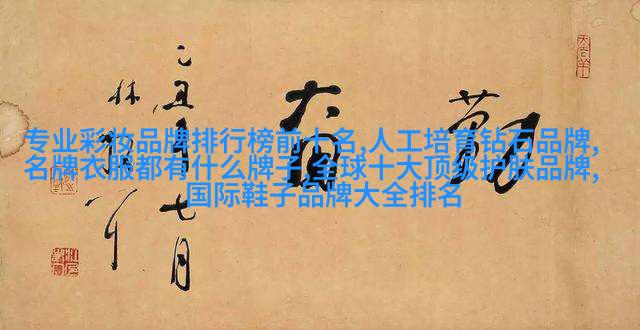 专业彩妆品牌排行榜前十名,人工培育钻石品牌,
名牌衣服都有什么牌子,全球十大顶级护肤品牌,
国际鞋子品牌大全排名
勤奋
乙丑年七月
林散耳